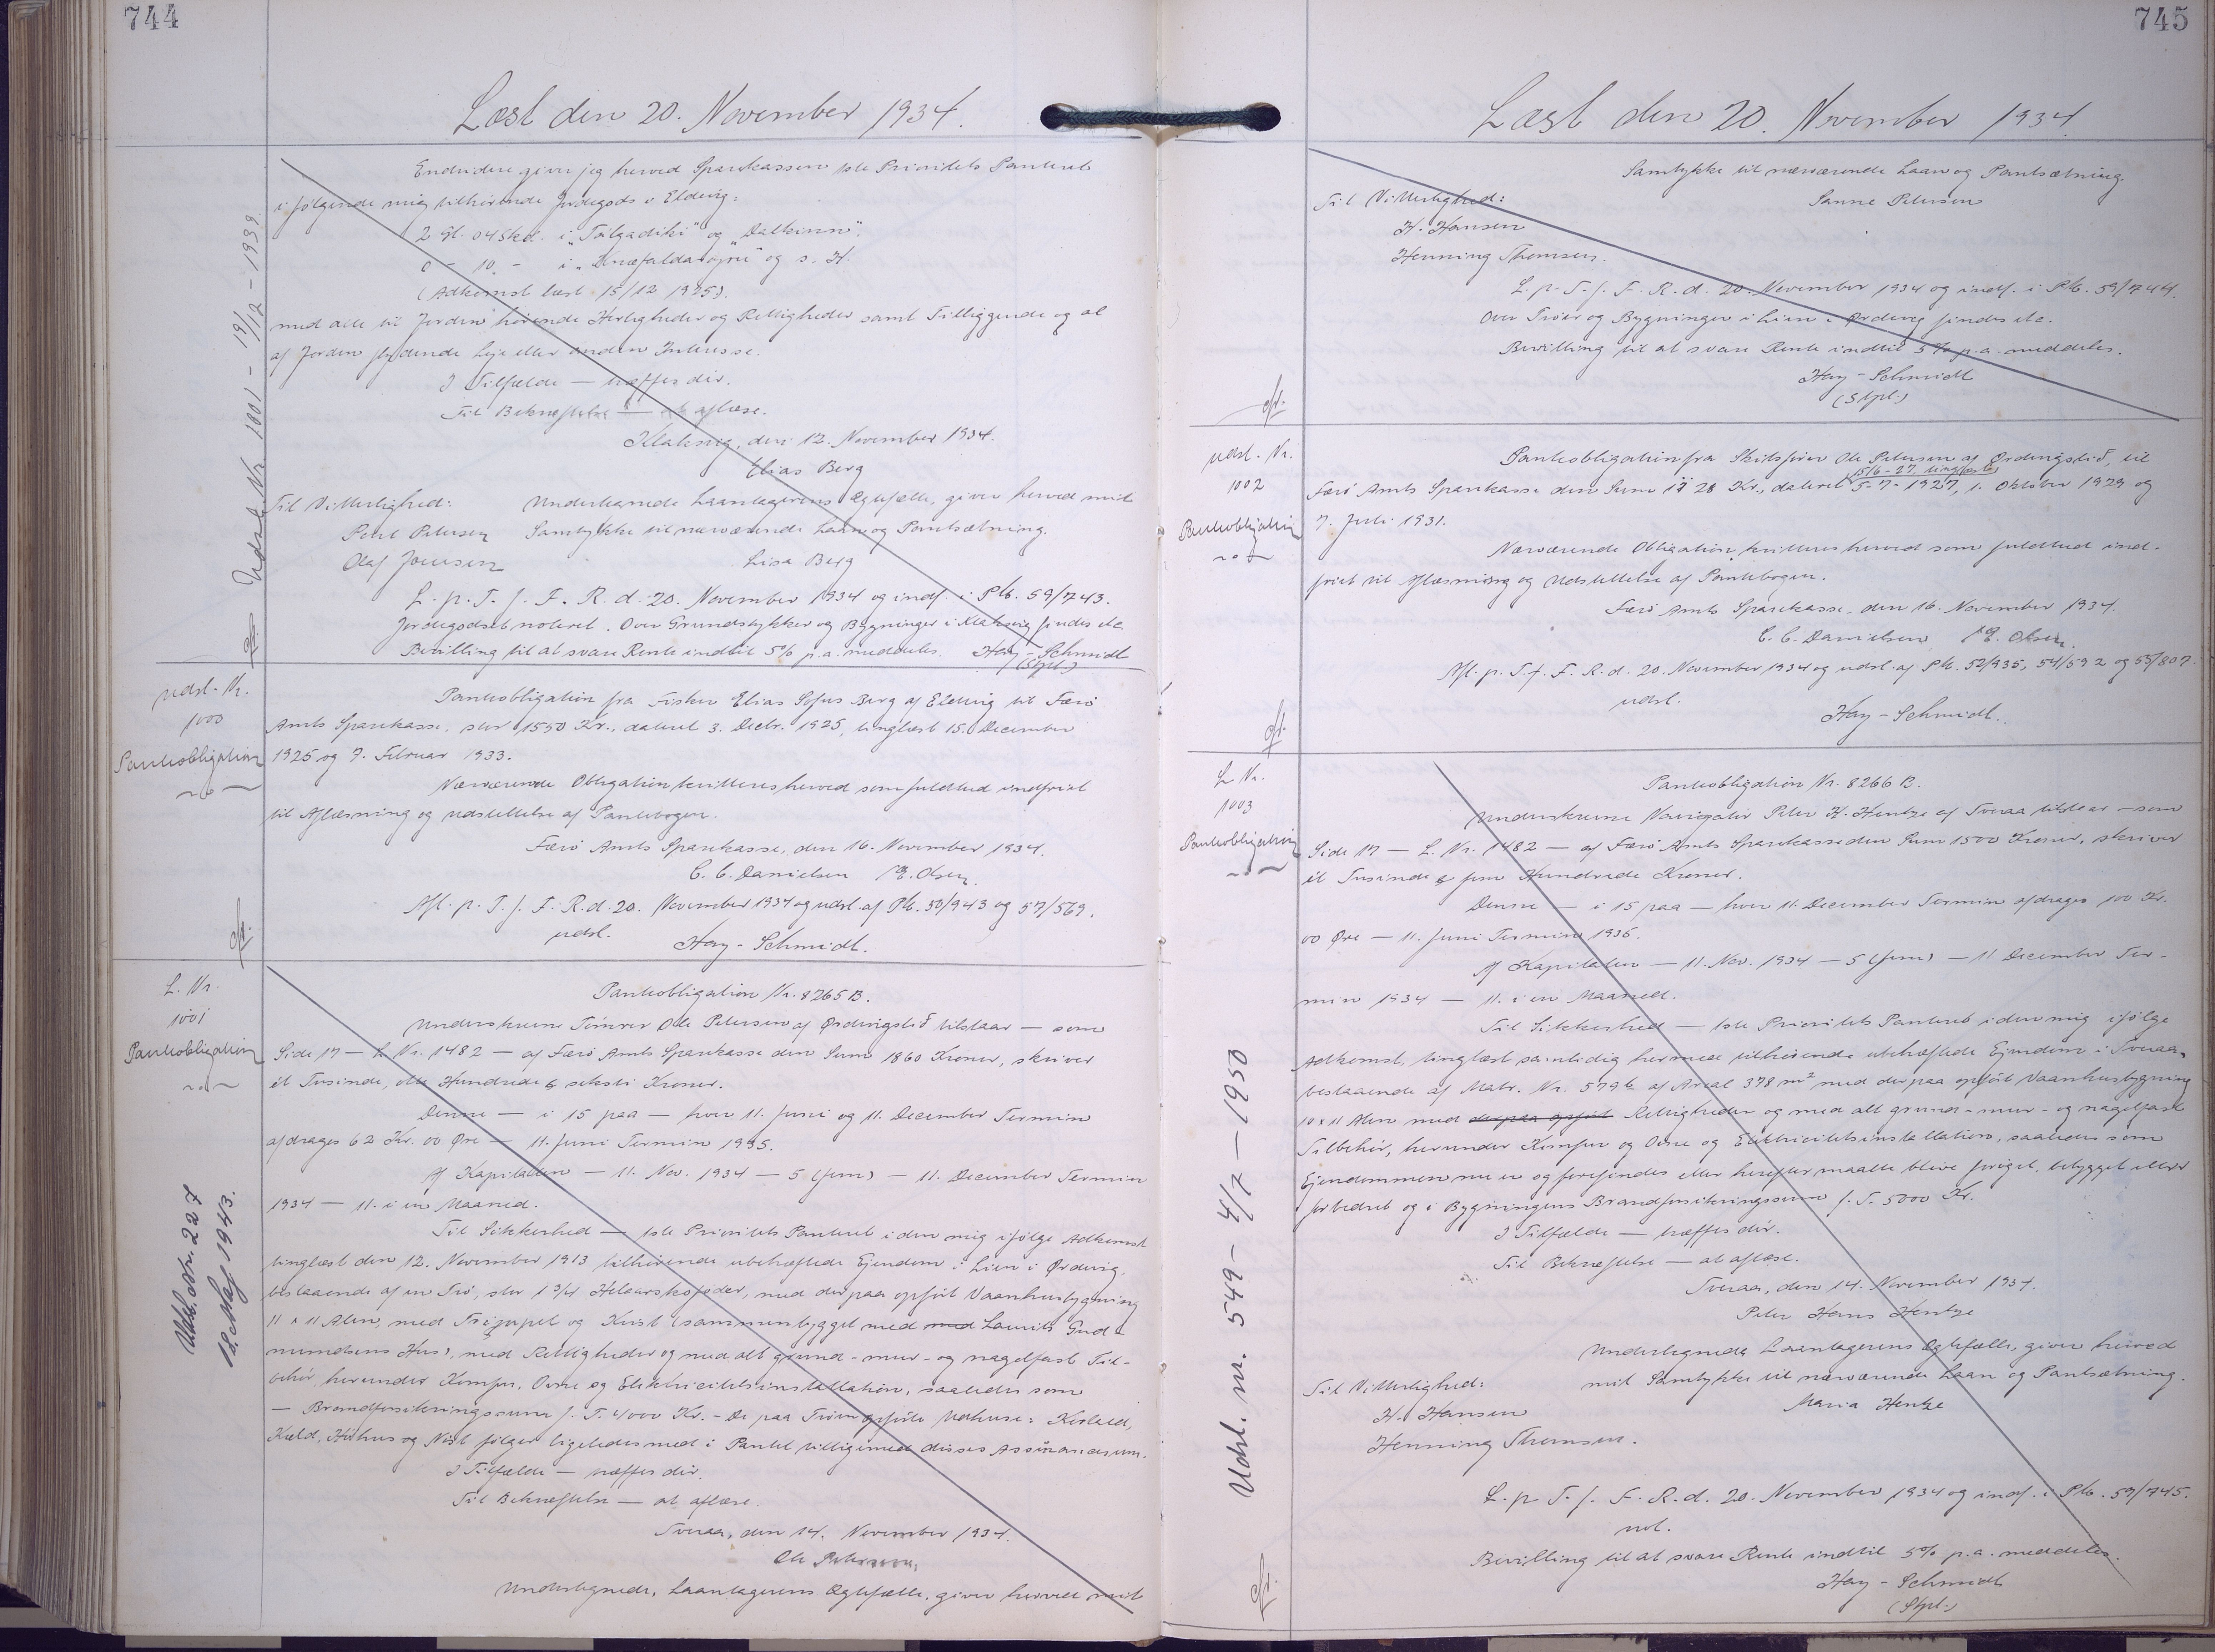 744
Læst den 20. November 1934.
Endvidere giver jeg herved Sparekassen 1ste Prioritets Panteret
i følgende mig tilhørende Jordegods i Eldevig:
2 Gl. 04 Skd. i og
0 - 10 - i og s. H.
(Adkomst læst 15/12 1925).
med alle til Jorden hørende Herligheder og Rettigheder samt Tilliggende og al
af Jorden flydende Leje eller anden Interesse.
I Tilfælde — træffes dér.
Til Bekræftelse — at aflæse.
Klaksvig, den 12. November 1934.
Elias Berg
Til Vitterlighed: Undertegnede Laantagerens Ægtefælle, giver herved mit
Petersen Samtykke til nærværende Laan og Pantsætning.
Olaf Joensen Lisa Berg
L. p. T. f. F. R. d. 20. November 1934 og indf. i Ptb. 59/743.
Jordegodset noteret. Over Grundstykker og Bygninger i Klaksvig findes etc.
Bevilling til at svare Rente indtil 5% p.a. meddeles. Hay-Schmidt
(Stpl.)
Udsl. Nr. 1001 - 19/12 - 1939.
udsl. Nr.
1000
Pantobligation
Pantobligation fra Fisker Elias Sofus Berg af Eldevig til Færø
Amts Sparekasse, stor 1550 Kr., dateret 3. Decbr. 1925, tinglæst 15. December
1925 og 7. Februar 1933.
Nærværende Obligation kvitteres herved som fuldtud indfriet
til Aflæsning og Udslettelse af Pantebogen.
Færø Amts Sparekasse, den 16. November 1934.
C. C. Danielsen / E. Olsen.
Afl. p. T. f. F. R. d. 20. November 1934 og udsl. af Ptb. 50/943 og 57/569.
udsl. Hay-Schmidt.
L. Nr.
1001
Pantobligation
Udsl. Nr. 227
12. Maj 1943.
Pantobligation Nr. 8265 B.
Underskrevne Tømrer Ole Petersen af Ørdevigstið tilstaar — som
Side 17 — L. Nr. 1482 — af Færø Amts Sparekasse den Sum 1860 Kroner, skriver
ét Tusinde, otte Hundrede & seksti Kroner.
Denne — i 15 paa — hver 11. Juni og 11. December Termin
afdrages 62 Kr. 00 Øre — 11. Juni Termin 1935.
Af Kapitalen — 11. Nov. 1934 — 5 (fem) — 11. December Termin
1934 — 11. i en Maaned.
Til Sikkerhed — 1ste Prioritets Panteret i den mig ifølge Adkomst
tinglæst den 12. November 1913 tilhørende ubehæftede Ejendom i Lien i Ørdevig,
bestaaende af en Trø, stor 1 3/4 Helaarskofoder, med derpaa opført Vaanhusbygning
11 x 11 Alen, med og Kvist (sammenbygget med med Laurits Gud-
mundsens Hus), med Rettigheder og med alt grund- mur- og nagelfast Til-
behør, herunder Komfur, Ovne og Elektricitetsinstallation, saaledes som
— Brandforsikringssum f. T. 4000 Kr. - De paa Trøen opførte Udhuse:
Høhus og følger ligeledes med i Pantet tilligemed disses Assurancesum.
I Tilfælde — træffes dér.
Til Bekræftelse — at aflæse.
Tveraa, den 14. November 1934.
Ole Petersen.
Undertegnede, Laantagerens Ægtefælle, giver herved mit
745
Læst den 20. November 1934.
Samtykke til nærværende Laan og Pantsætning.
Til Vitterlighed: Sanne Petersen
H. Hansen
Henning Thomsen.
L. p. T. f. F. R. d. 20. November 1934 og indf. i Ptb. 59/744.
Over Trøer og Bygninger i Lien i Ørdevig findes etc.
Bevilling til at svare Rente indtil 5% p.a. meddeles.
Hay-Schmidt
(Stpl.)
udsl. Nr.
1002
Pantobligation
Pantobligation fra Skibsfører Ole Petersen af Ørdevigstið, til
15/6-27, tinglæst
Færø Amts Sparekasse den Sum 28 Kr., dateret 5-7-1927, 1. Oktober 1929 og
7. Juli 1931.
Nærværende Obligation kvitteres herved som fuldtud ind-
friet til Aflæsning og Udslettelse af Pantebogen.
Færø Amts Sparekasse, den 16. November 1934.
C. C. Danielsen / E. Olsen.
Afl. p. T. f. F. R. d. 20. November 1934 og udsl. af Ptb. 52/935, 54/592 og 55/807.
udsl. Hay-Schmidt.
L Nr.
1003
Pantobligation
Udsl. nr. 549 - 4/7 - 1950
Pantobligation Nr. 8266 B.
Underskrevne Navigatør Peter H. Hentze af Tveraa tilstaar — som
Side 17 — L. Nr. 1482 — af Færø Amts Sparekasse den Sum 1500 Kroner, skriver
ét Tusinde & fem Hundrede Kroner.
Denne — i 15 paa — hver 11. December Termin afdrages 100 Kr.
00 Øre — 11. Juni Termin 1935.
Af Kapitalen — 11. Nov. 1934 — 5 (fem) — 11 December Ter-
min 1934 — 11. i en Maaned.
Til Sikkerhed — 1ste Prioritets Panteret i den mig ifølge
Adkomst, tinglæst samtidig hermed tilhørende ubehæftede Ejendom i Tveraa,
bestaaende af Matr. Nr. 579b af Areal 378 m² med derpaa opført Vaanhusbygning
10 x 11 Alen med derpaa opført Rettigheder og med alt grund- mur- og nagelfast
Tilbehør, herunder Komfur og Ovne og Elektricitetsinstallation, saaledes som
Ejendommen nu er og forefindes eller herefter maatte blive forøget, bebygget eller
forbedret og i Bygningens Brandforsikringssum f. T. 5000 Kr.
I Tilfælde — træffes dér.
Til Bekræftelse — at aflæse.
Tveraa, den 14. November 1934.
Peter Hans Hentze
Undertegnede Laantagerens Ægtefælle, giver herved
Til Vitterlighed: mit Samtykke til nærværende Laan og Pantsætning.
H. Hansen Maria Hentze
Henning Thomsen.
L. p. T. f. F. R. d. 20. November 1934 og indf. i Ptb. 59/745.
not.
Bevilling til at svare Rente indtil 5% p.a. meddeles.
Hay-Schmidt
(Stpl.)